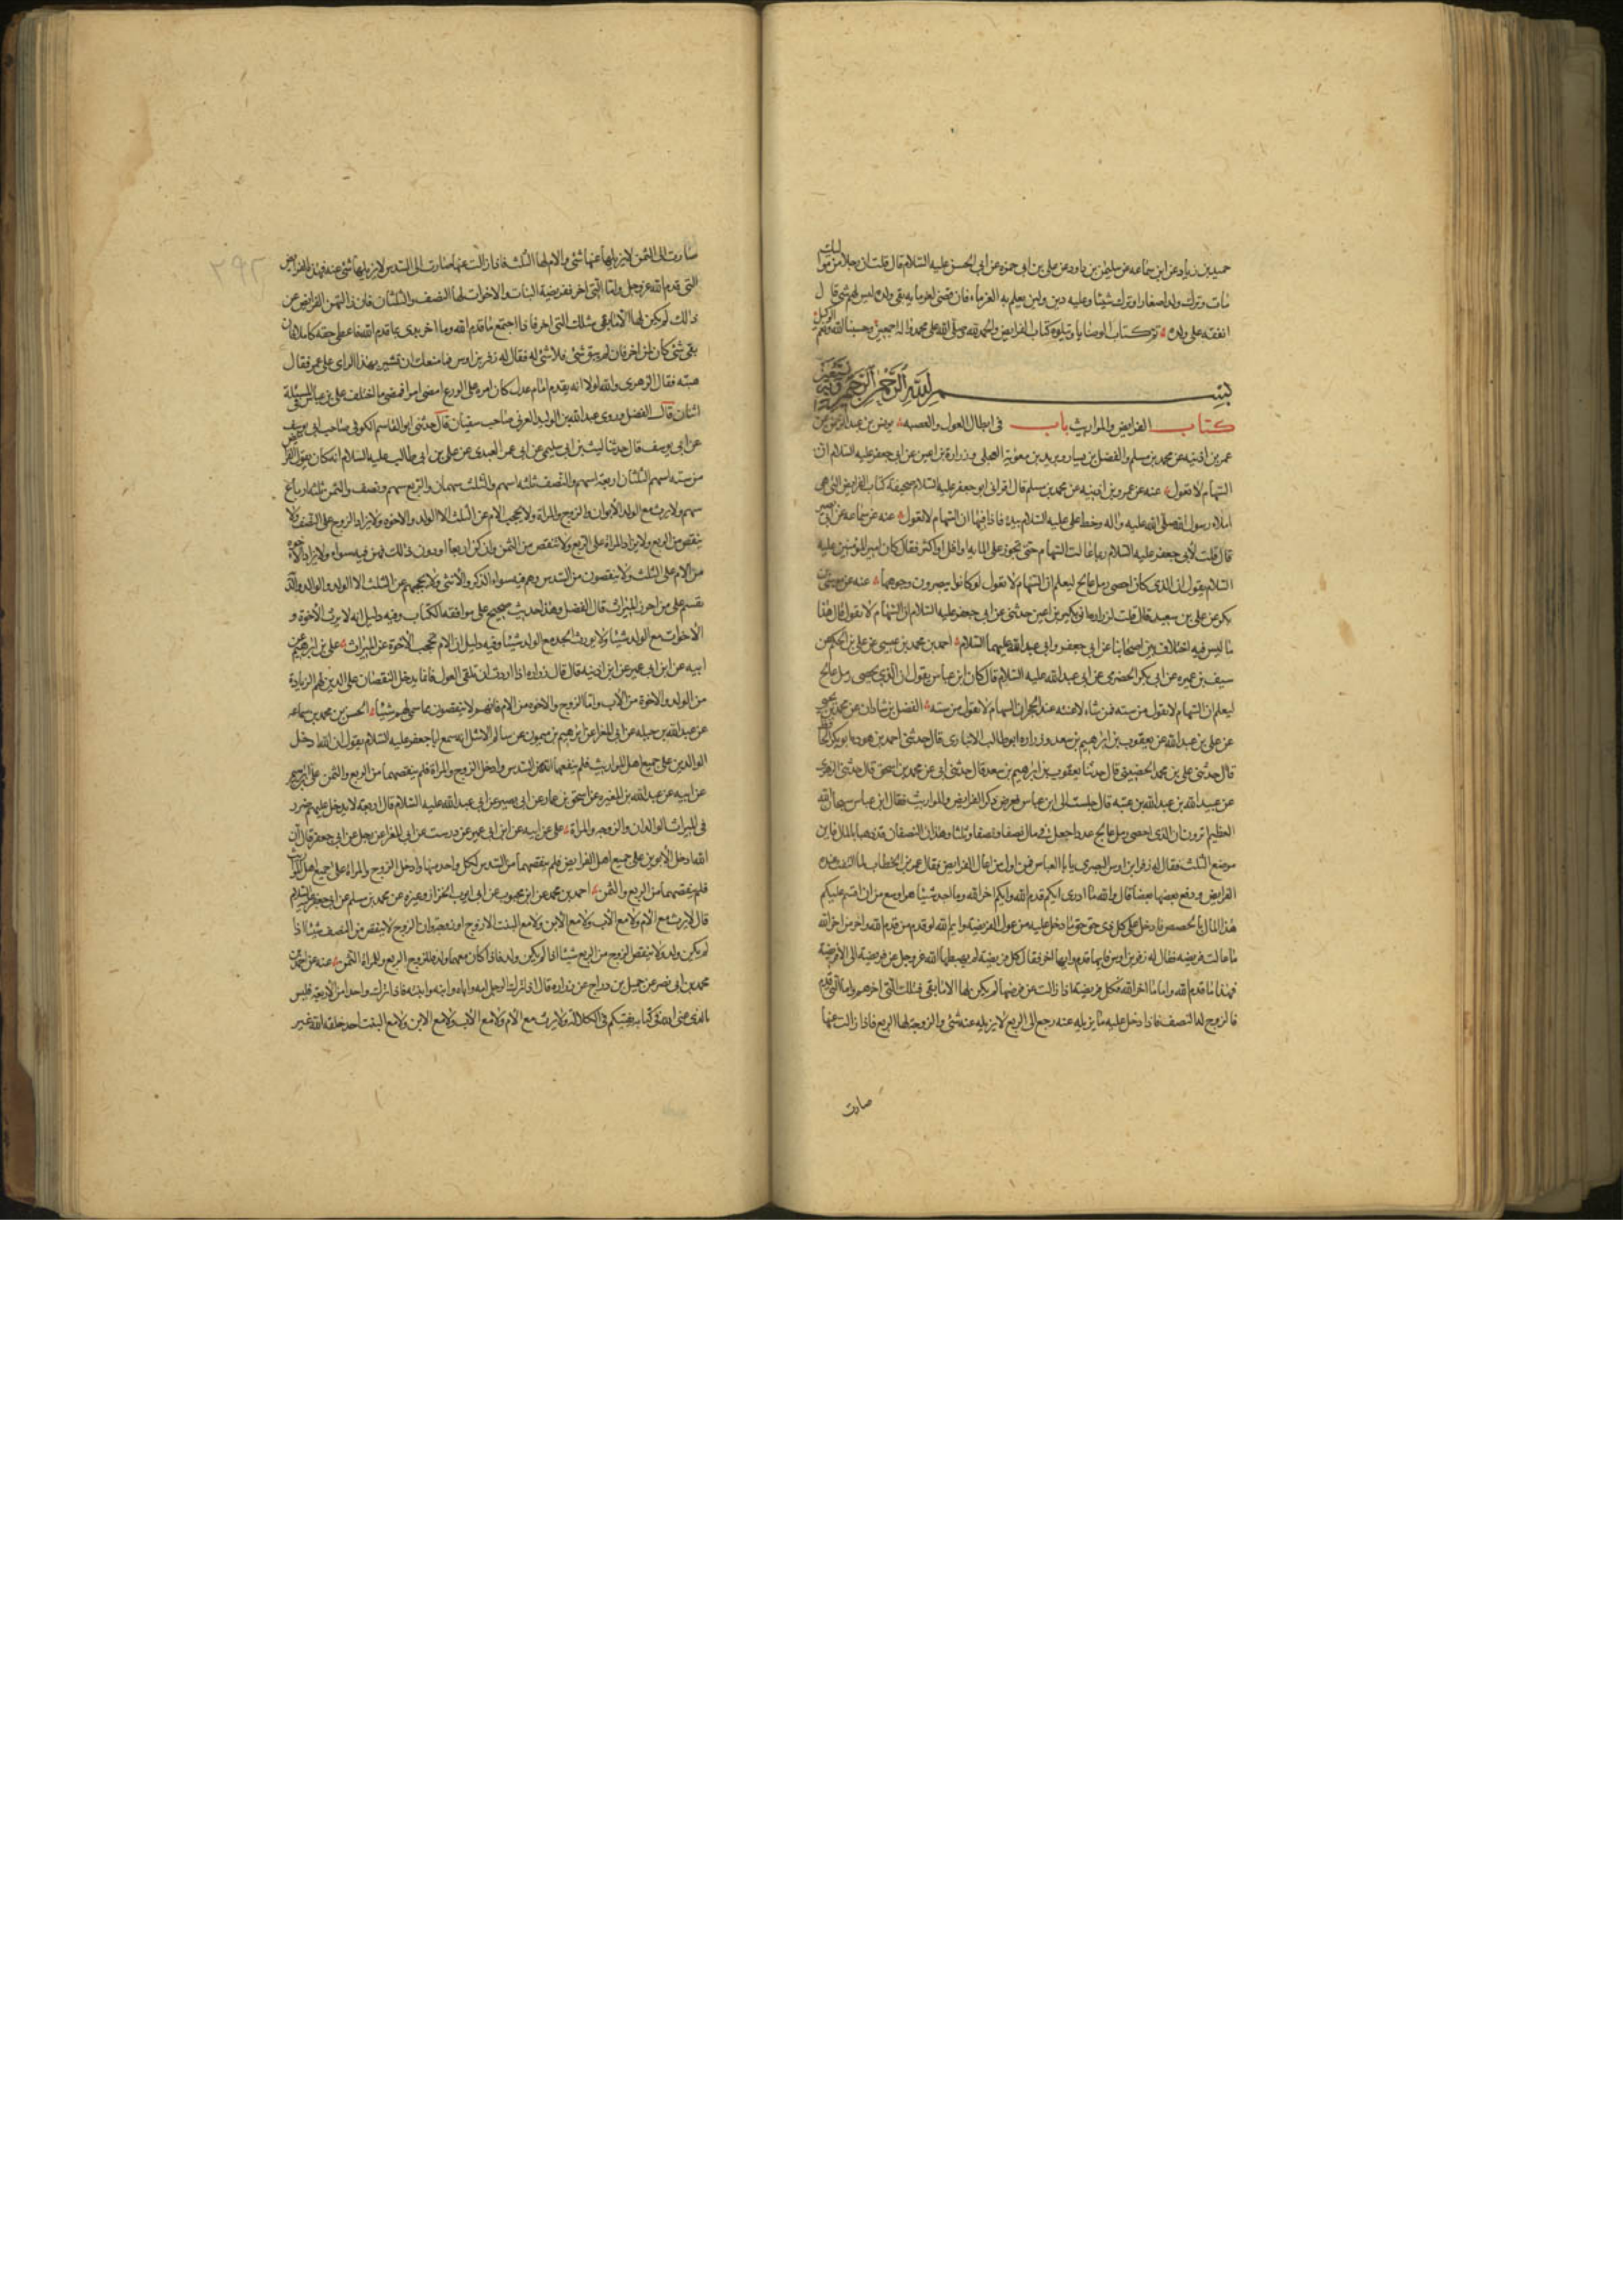 حميد بن زياد عن ابن سماعه عن سليمن بن داود عن على بن ابى حمزه عن ابى الحسن عليه السلام قال قلت ان رجلا من مواليك
مات وترك ولدا صغارا وترك شيئا وعليه دين وليس يعلم به الغرماء فان قضى لغرمايه بقى ولده ليس لهم شئ قال
انفقه على ولده تم كتاب الوصايا ويتلوه كتاب الفرايض والحمد لله وصلى الله على محمد واله اجمعين وحسبنا الله ونعم الوكيل
بسم الله الرحمن الرحيم وبه نستعين
كتاب الفرايض والمواريث باب فى ابطال العول والعصبه يونس بن عبد الرحمن عن
عمر بن اذينه عن محمد بن مسلم والفضل بن يسار وبريد بن معوية العجلى وزرارة بن اعين عن ابى جعفر عليه السلام ان
السهام لا تعول عنه عن عمر بن اذينه عن محمد بن مسلم قال اقرانى ابو جعفر عليه السلام صحيفة كتاب الفرايض التى هى
املاء رسول الله صلى الله عليه واله وخط على عليه السلام بيده فاذا فيها ان السهام لا تعول عنه عن سماعه عن ابى بصير
قال قلت لابى جعفر عليه السلام ربما عالت السهام حتى تجوز على المايه او اقل او اكثر فقال كان امير المؤمنين عليه
السلام يقول ان الذى كان احصى رمل عالج ليعلم ان السهام لا تعول لو كانوا يبصرون وجوهها عنه عن موسى بن
بكر عن على بن سعيد قال قلت لزراره ان بكير بن اعين حدثنى عن ابى جعفر عليه السلام ان السهام لا تعول قال هذا
ما ليس فيه اختلاف بين اصحابنا عن ابى جعفر وابى عبد الله عليهما السلام احمد بن محمد بن عيسى عن على بن الحكم عن
سيف بن عميره عن ابى بكر الحضرمى عن ابى عبد الله عليه السلام قال كان ابن عباس يقول ان الذى يحصى رمل عالج
ليعلم ان السهام لا تعول من سته فمن شاء لاعنته عند الحجر ان السهام لا تعول من سته الفضل بن شاذان عن محمد بن يحيى
عن على بن عبد الله عن يعقوب بن ابرهيم بن سعد ورواه ابو طالب الانبارى قال حدثنى احمد بن هوذه ابو بكر الحافظ
قال حدثنى على بن محمد الحضينى قال حدثنا يعقوب بن ابرهيم بن سعد قال حدثنى ابى عن محمد بن اسحق قال حدثنى الزهرى
عن عبيد الله بن عبد الله بن عتبه قال جلست الى ابن عباس فعرض ذكر الفرايض والمواريث فقال ابن عباس سبحان الله
العظيم اترون ان الذى احصى رمل عالج عددا جعل فى مال نصفا ونصفا وثلثا وهذان النصفان قد ذهبا بالمال فاين
موضع الثلث فقال له زفر بن اوس البصرى يا با العباس فمن اول من اعال الفرايض فقال عمر بن الخطاب لما التفت عنده
الفرايض ودفع بعضها بعضا قال والله ما ادرى ايكم قدم الله وايكم اخر الله وما اجد شيئا هو اوسع من ان اقسم عليكم
هذا المال بالحصص فادخل على كل ذى حق حق ما دخل عليه من عول الفريضة وايم الله لو قدم من قدم الله واخر من اخر الله
ما عالت فريضه فقال له زفر بن اوس فايها قدم وايها اخر فقال كل فريضة لم يهبطها الله عز وجل عن فريضة الا الى فريضة
فهذا ما قدم الله واما ما اخر الله فكل فريضة اذا زالت عن فرضها لم يكن لها الا ما بقى فتلك التى اخر واما التى قدم
فالزوج له النصف فاذا دخل عليه ما يزيله عنه رجع الى الربع لا يزيله عنه شئ والزوجة لها الربع فاذا زالت عنها
صارت
٢٩٢
صارت الى الثمن لا يزيلها عنها شئ والام لها الثلث فاذا زالت عنها صارت الى السدس لا يزيلها شئ عنه فهذه الفرايض
التى قدم الله عز وجل واما التى اخر ففريضة البنات والاخوات لها النصف والثلثان فان زالتهن الفرايض عن
ذلك لم يكن لها الا ما بقى فتلك التى اخر فاذا اجتمع ما قدم الله وما اخر بدى بما قدم الله فاعطى حقه كاملا فان
بقى شئ كان لمن اخر فان لم يبق شئ فلا شئ له فقال له زفر بن اوس فما منعك ان تشير بهذا الراى على عمر فقال
هبته فقال الزهرى والله لولا انه يقدم امام عدل كان امره على الورع امضى امرا فمضى ما اختلف على بن عباس فى المسئلة
اثنان قال الفضل وروى عبد الله بن الوليد العرنى صاحب سفيان قال حدثنى ابو القاسم الكوفى صاحب ابى يوسف
عن ابى يوسف قال حدثنا ليث بن ابى سليم عن ابى عمر العبدى عن على بن ابى طالب عليه السلام انه كان يقول الفرايض
من سته اسهم الثلثان اربعة اسهم والنصف ثلثه اسهم والثلث سهمان والربع سهم ونصف والثمن ثلثه ارباع
سهم ولا يرث مع الولد الا الابوان والزوج والمراة ولا يحجب الام عن الثلث الا الولد والاخوه ولا يزاد الزوج على النصف ولا
ينقص من الربع ولا تزاد المراة على الربع ولا تنقص من الثمن وان كن اربعا او دون ذلك فهن فيه سواء ولا يزاد الاخوه
من الام على الثلث ولا ينقصون من السدس وهم فيه سواء الذكر والانثى ولا يحجبهم عن الثلث الا الولد والوالد والدية
تقسم على من احرز الميراث قال الفضل وهذا حديث صحيح على موافقه الكتاب وفيه دليل انه لا يرث الاخوة و
الاخوات مع الولد شيئا ولا يورث الجد مع الولد شيئا وفيه دليل ان الام تحجب الاخوة عن الميراث على بن ابرهيم عن
ابيه عن ابن ابى عمير عن ابن اذينه قال قال زراره اذا اردت ان تلقى العول فانما يدخل النقصان على الذين لهم الزيادة
من الولد والاخوة من الاب واما الزوج والاخوه من الام فانهم لا ينقصون مما سمى لهم شيئا الحسن بن محمد بن سماعه
عن عبد الله بن جبله عن ابى المغرا عن ابرهيم بن ميمون عن سالم الاشل انه سمع ابا جعفر عليه السلام يقول ان الله ادخل
الوالدين على جميع اهل المواريث فلم ينقصهما الله من السدس وادخل الزوج والمراة فلم ينقصهما من الربع والثمن على بن ابرهيم
عن ابيه عن عبد الله بن المغيره عن اسحق بن عمار عن ابى بصير عن ابى عبد الله عليه السلام قال اربعة لا يدخل عليهم ضرر
فى الميراث الوالدان والزوج والمراة على عن ابيه عن ابن ابى عمير عن درست عن ابى المغرا عن رجل عن ابى جعفر قال ان
الله ادخل الابوين على جميع اهل الفرايض فلم ينقصهما من السدس لكل واحد منهما وادخل الزوج والمراة على جميع اهل المواريث
فلم ينقصهما من الربع والثمن احمد بن محمد عن ابن محبوب عن ابى ايوب الخزاز وغيره عن محمد بن مسلم عن ابى جعفر عليه السلام
قال لا يرث مع الام ولا مع الاب ولا مع الابن ولا مع البنت الا زوج او زوجة وان الزوج لا ينقص من النصف شيئا اذا
لم يكن ولد ولا ينقص الزوجة من الربع شيئا اذا لم يكن ولد فاذا كان معهما ولد فللزوج الربع وللمراة الثمن عنه عن احمد بن
محمد بن ابى نصر عن جميل بن دراج عن زراره قال اذا ترك الرجل امه واباه وابنه وابنته فاذا ترك واحدا من الاربعة فليس
بالذى عنى الله فى كتابه يفتيكم فى الكلالة ولا يرث مع الام ولا مع الاب ولا مع الابن ولا مع البنت احد خلقه الله غير